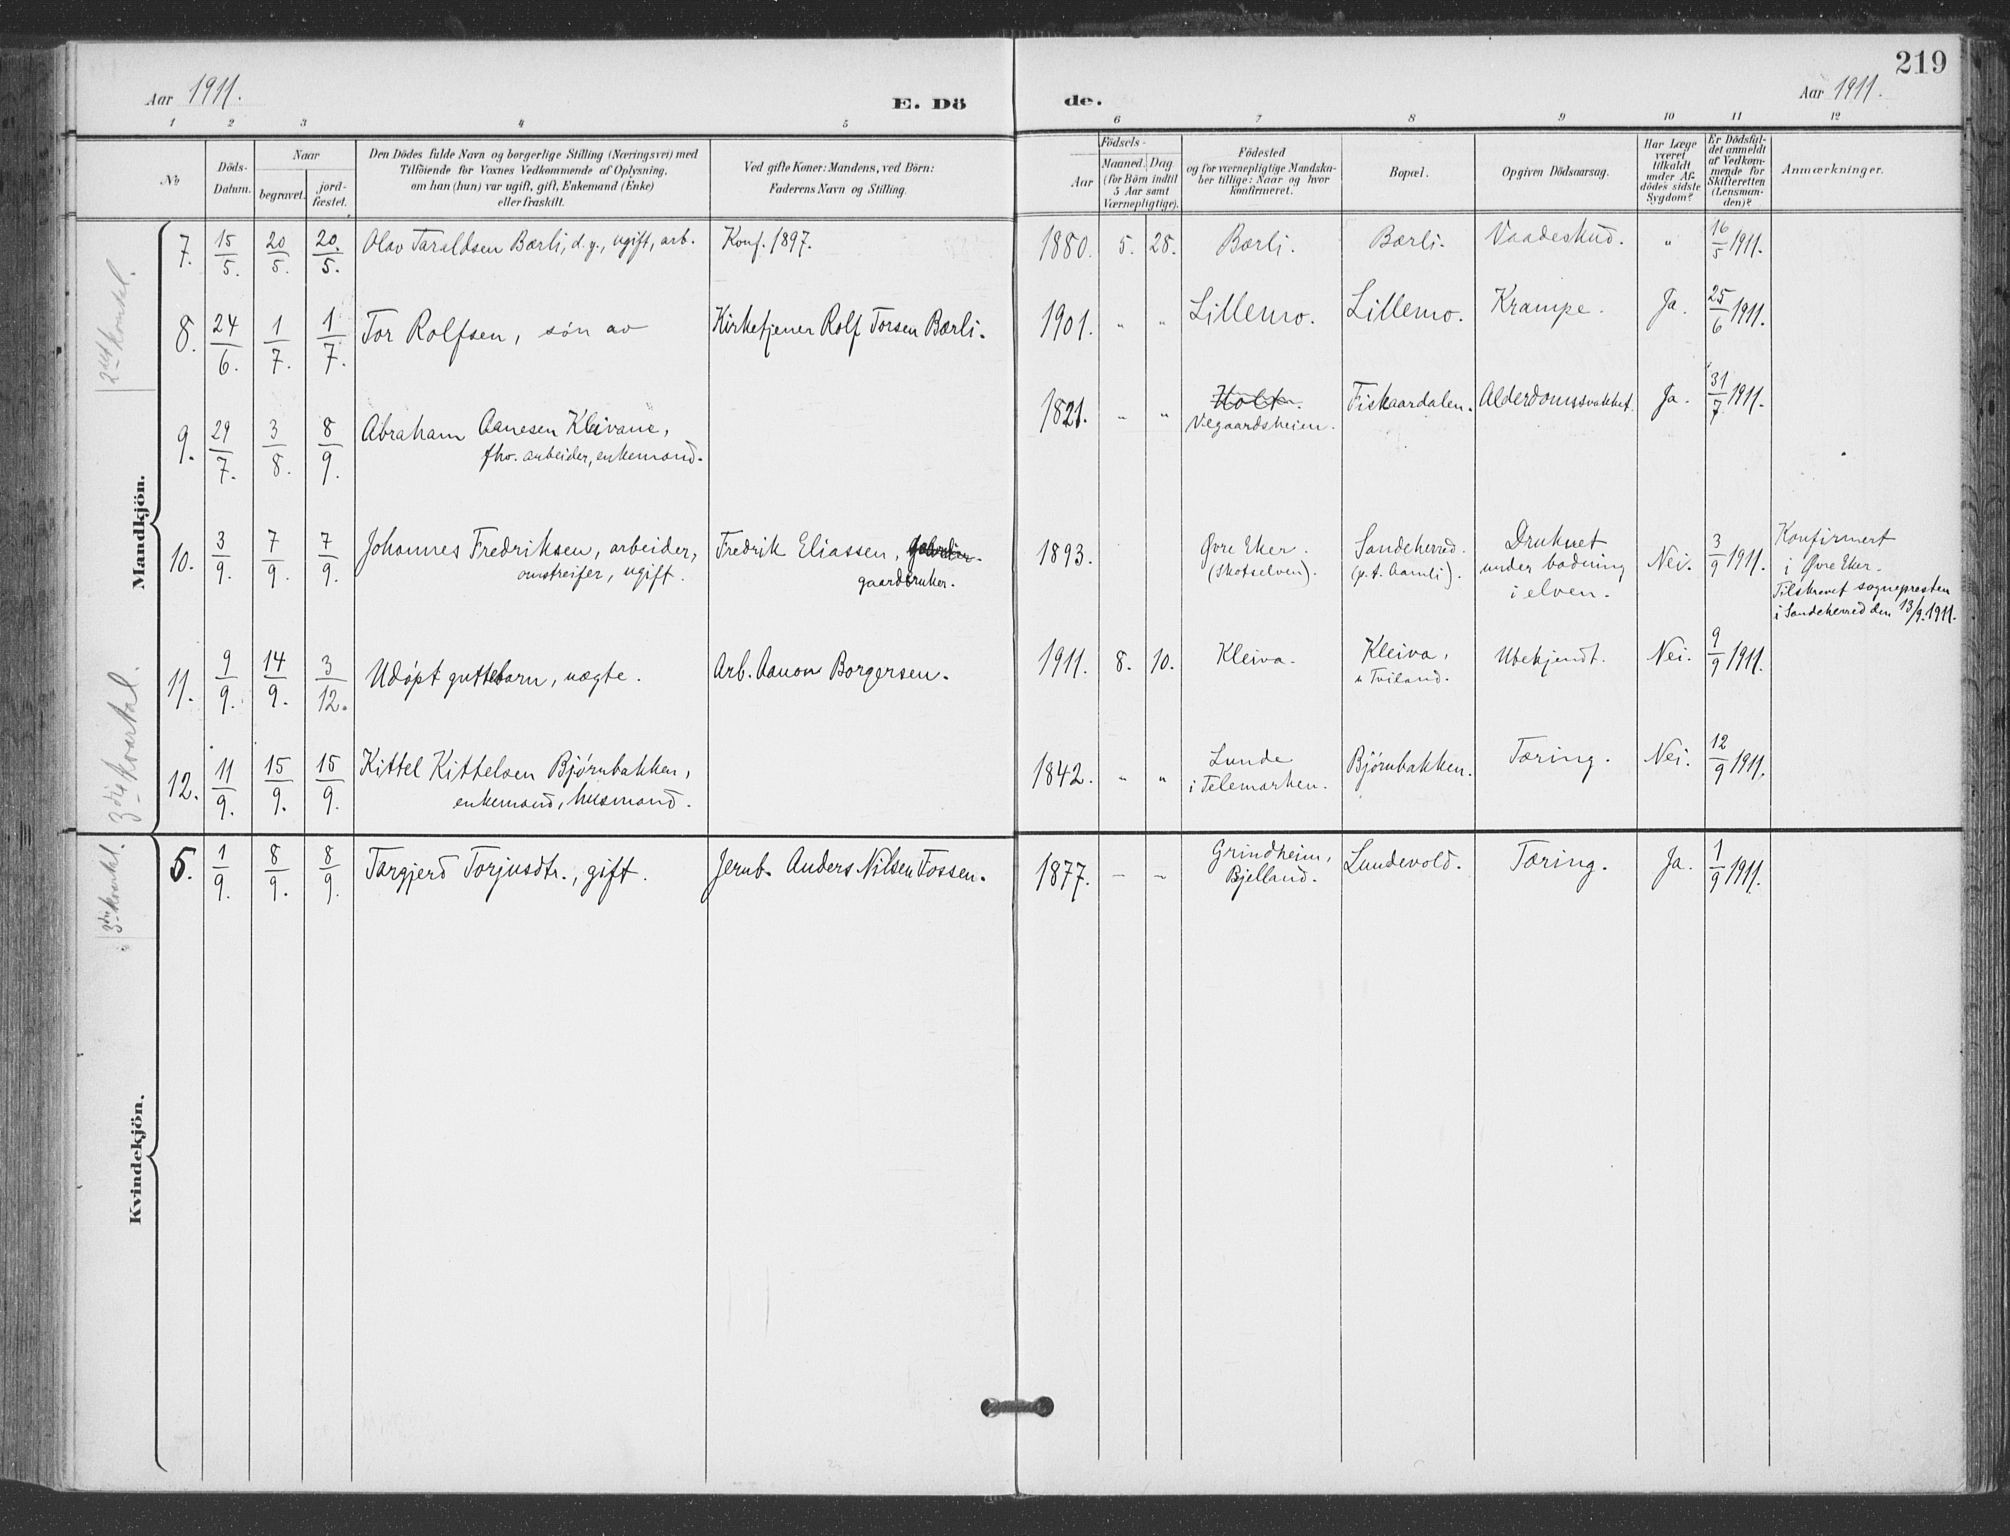 219
Aar 1911.
E. Dö
de.
Aar 1911.
1 2 3 4 5 6 7 8 9 10 11 12
No
Döds-
Datum.
Naar
begravet.
jord-
fæstet.
Den Dödes fulde Navn og borgerlige Stilling (Næringsvei) med
Tilföiende for Voxnes Vedkommende af Oplysning,
om han (hun) var ugift, gift, Enkemand (Enke)
eller fraskilt.
Ved gifte Koner: Mandens, ved Börn:
Faderens Navn og Stilling.
Födsels-
Aar
Maaned. Dag
(for Börn indtil
5 Aar samt
Værnepligtige).
Födested
og for værnepligtige Mandska-
ber tillige: Naar og hvor
konfirmeret.
Bopæl.
Opgiven Dödsaarsag.
Har Læge
været
tilkaldt
under Af-
dödes sidste
Sygdom?
Er Dödsfal-
det anmeldt
af Vedkom-
mende for
Skifteretten
(Lensman-
den)?
Anmærkninger.
Mandkjön.
7. 15/5. 20/5. 20/5. Olav Taraldsen Bærli, d.y., ugift, arb. Konf. 1897. 1880. 5. 28. Bærli. Bærli. Vaadeskud. " 16/5 1911.
8. 24/6. 1/7. 1/7. Tor Rolfsen, søn av Kirketjener Rolf Torsen Bærli. 1901. " " Lillemo. Lillemo. Krampe. Ja. 25/6 1911.
9. 29/7. 3/8. 8/9. Abraham Aanesen Kleivane, 1821. " " Holt. Fiskaardalen. Alderdomssvakhet. Ja. 31/7 1911.
fhv. arbeider, enkemand. Vegaardsheien.
10. 3/9. 7/9. 7/9. Johannes Fredriksen, arbeider, Fredrik Eliassen, 1893. Øvre Eker. Sandeherred. Druknet Nei. 3/9 1911. Konfirmert
omstreifer, ugift. gaardbruker. (Skotselven). (p.t. Aamli). under badning i Øvre Eker.
i elven. Tilskrevet sognepresten
i Sandeherred den 13/9. 1911.
11. 9/9. 14/9. 3/12. Udøpt guttebarn, uægte. Arb. Aanon Borgersen. 1911. 8. 10. Kleiva. Kleiva, Ubekjendt. Nei. 9/9 1911.
Tviland.
3die kvartal.
12. 11/9. 15/9. 15/9. Kittel Kittelsen Bjørnbakken, 1842. " " Lunde Bjørnbakken. Tæring. Nei. 12/9 1911.
enkemand, husmand. i Telemarken.
3die kvartal.
Kvindekjön.
5. 1/9. 8/9. 8/9. Targjerd Torjusdtr., gift. Jernb. Anders Nilsen Fossen. 1877. – – Grindheim, Lundevold. Tæring. Ja. 1/9 1911.
Bjelland.